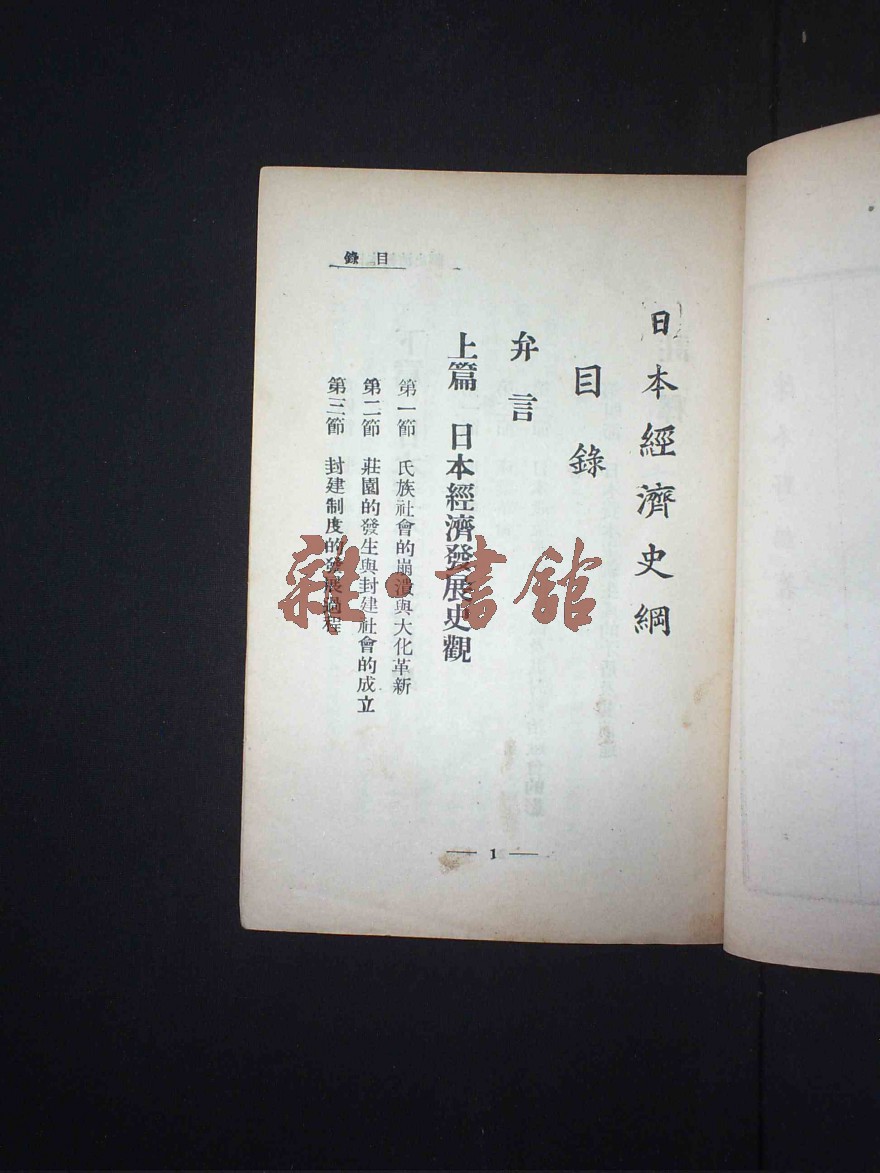 目錄
日本經濟史綱
目錄
弁言
上篇 日本經濟發展史觀
第一節 氏族社會的崩潰與大化革新
第二節 莊園的發生與封建社會的成立
第三節 封建制度的發展過程
— 1 —
雜·書館